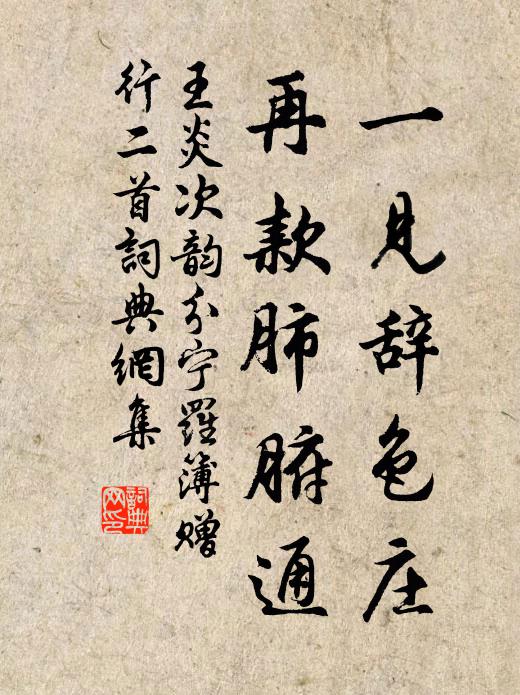 一见辞色庄
再款肺腑通
王炎次韵分宁羅簿赠
行二首詞典網集
詞典
网印